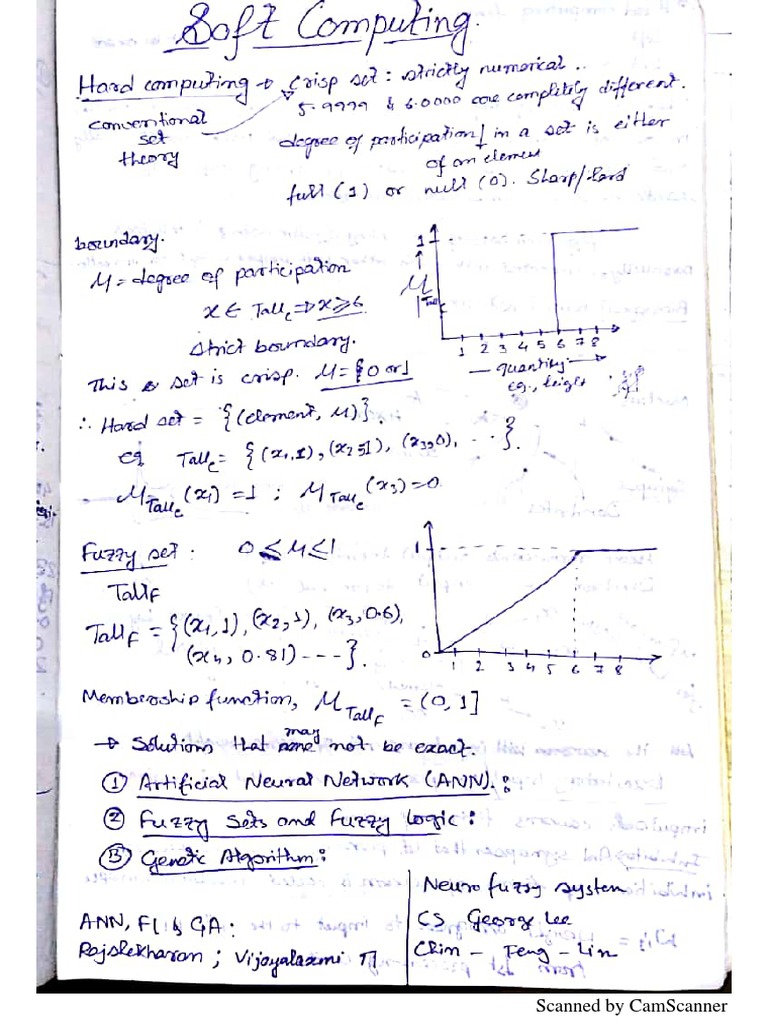 Soft Computing.
Hard computing → Crisp set : strictly numerical ..
5.9999 & 6.0000 are completely different.
conventional
set
theory
degree of participation in a set is either
of an element
full (1) or null (0). Sharp/Hard
boundary.
μ = degree of participation
x ∈ Tall_C ⇒ x ≥ 6
Strict boundary.
This set is crisp. μ = {0 or 1
1
μ
Tall
1 2 3 4 5 6 7 8
— quantity →
eg., height
∴ Hard set = {(element, μ)}.
eg Tall_C = {(x₁,1), (x₂,1), (x₃,0), ---}.
μ_Tall_C (x₁) = 1 ; μ_Tall_C (x₃) = 0
Fuzzy set : 0 ≤ μ ≤ 1
Tall_F
Tall_F = {(x₁,1), (x₂,1), (x₃,0.6),
(x₄, 0.81) ---}.
1
0
1 2 3 4 5 6 7 8
Membership function, μ_Tall_F = (0, 1]
→ Solutions that may not be exact.
① Artificial Neural Network (ANN). :
② Fuzzy Sets and Fuzzy Logic :
③ Genetic Algorithm :
ANN, FL & GA :
Rajslekharan ; Vijayalaxmi
Neuro fuzzy system
CS George Lee
Chim - Teng - Lin
Scanned by CamScanner